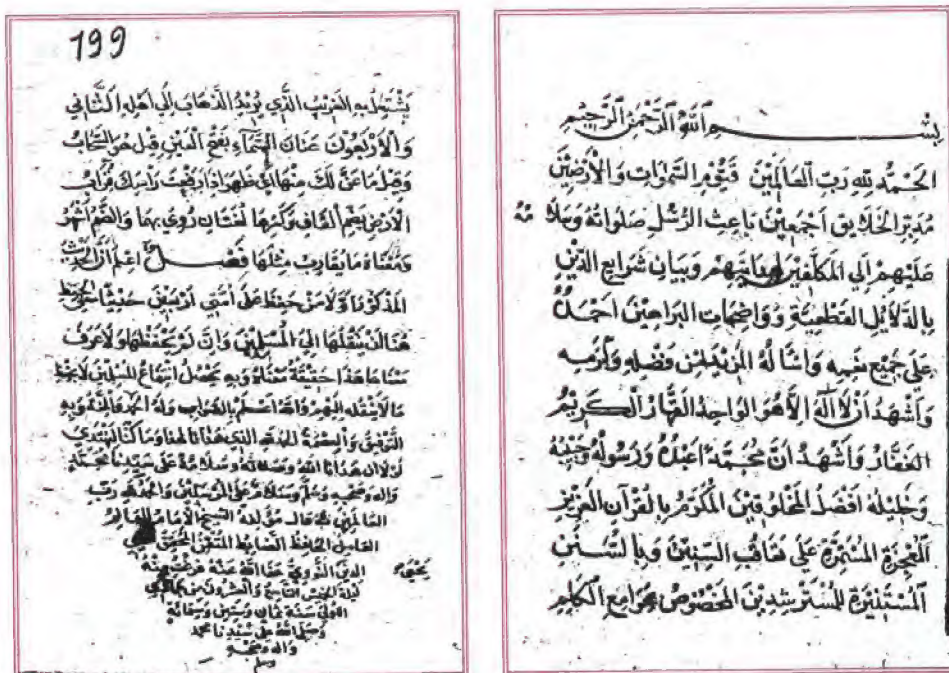 بسم الله الرحمن الرحيم
الحمد لله رب العالمين قيوم السموات والارضين
مدبر الخلايق اجمعين باعث الرسل صلواته وسلامه
عليهم الي المكلفين لهدايتهم وبيان شرايع الدين
بالدلايل القطعية وواضحات البراهين احمده
علي جميع نعمه واساله المزيد من فضله وكرمه
واشهد ان لا اله الا هو الواحد القهار الكريم
الغفار واشهد ان محمدا عبده ورسوله وحبيبه
وخليله افضل المخلوقين المكرم بالقرآن العزيز
المعجزة المستمرة علي تعاقب السنين وبالسنن
المستنيرة للمسترشدين المخصوص بجوامع الكلم
199
يشتمل به الغريب الذي يريد الذهاب الي اهله الثاني
والاربعون عنان السماء بفتح العين قيل هو السحاب
وقيل ما عن لك منها اي ظهر اذا رفعت راسك قراب
الارض بضم القاف وكسرها لغتان روي بهما والضم اشهر
ومعناه ما يقارب مثلها فصل اعلم ان الحديث
المذكور اولا من حفظ علي امتي اربعين حديثا معني الحفظ
هنا ان ينقلها الي المسلمين وان لم يحفظها ولا عرف
معناها هذا حقيقة معناه وبه يحصل انتفاع المسلمين لا بحفظ
ما لا ينقله اليهم والله اعلم بالصواب وله الحمد والمنة وبه
التوفيق والعصمة الحمد لله الذي هدانا لهذا وما كنا لنهتدي
لولا ان هدانا الله وصلاته وسلامه علي سيدنا محمد
واله وصحبه وسلم وسلام علي المرسلين والحمد لله رب
العالمين قال مولفه الشيخ الامام العالم
العامل الحافظ الضابط المتقن المحقق يحيي
الدين النووي عفا الله عنه فرغت منه
ليلة الخميس التاسع والعشرون من جمادي
الاولي سنة ثمان وستين وستمائة
وصلي الله علي سيدنا محمد
واله وصحبه
وسلم